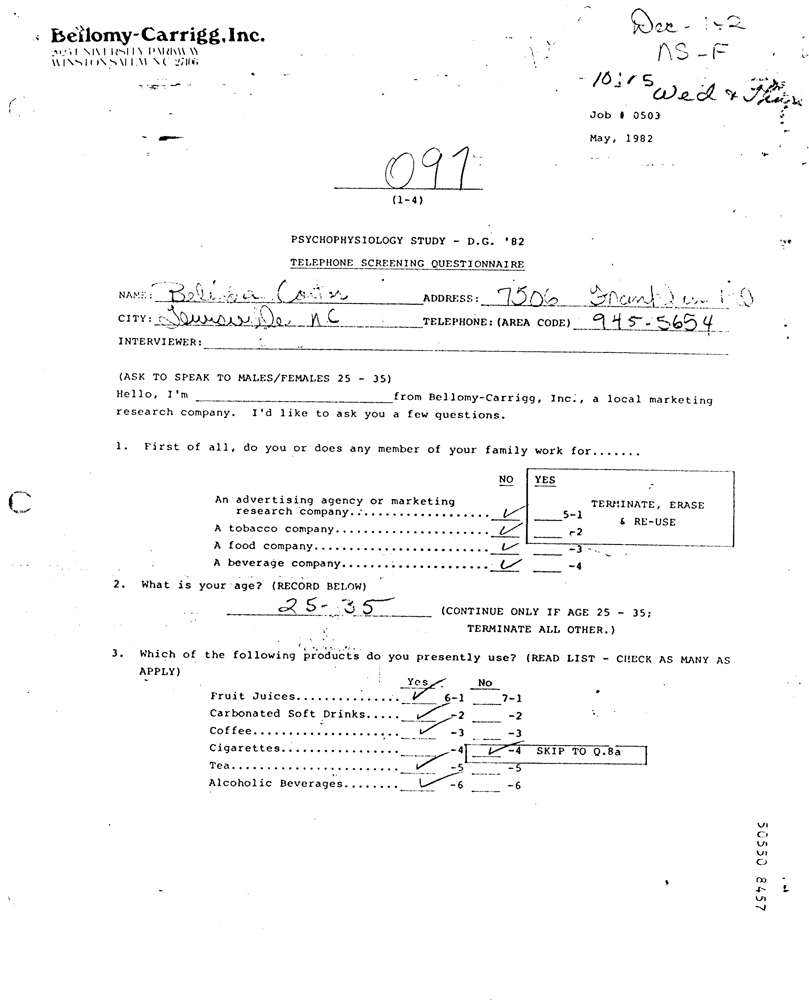 Bellomy-Carrigg, Inc.
2023 UNIVERSITY PARKWAY
WINSTON SALEM NC 27106
Dec - 1-2
NS-F
- 10:15 Wed &
Job # 0503
May, 1982
097
(1-4)
PSYCHOPHYSIOLOGY STUDY - D.G. '82
TELEPHONE SCREENING QUESTIONNAIRE
NAME: ADDRESS: 7506 RD
CITY: NC TELEPHONE: (AREA CODE) 945-5654
INTERVIEWER:
(ASK TO SPEAK TO MALES/FEMALES 25 - 35)
Hello, I'm ____ from Bellomy-Carrigg, Inc., a local marketing
research company. I'd like to ask you a few questions.
1. First of all, do you or does any member of your family work for.......
NO YES
An advertising agency or marketing
research company................... ✓ ____5-1 TERMINATE, ERASE
& RE-USE
A tobacco company..................... ✓ ____-2
A food company........................ ✓ ____-3
A beverage company.................... ✓ ____-4
2. What is your age? (RECORD BELOW)
25-35 (CONTINUE ONLY IF AGE 25 - 35;
TERMINATE ALL OTHER.)
3. Which of the following products do you presently use? (READ LIST - CHECK AS MANY AS
APPLY)
Yes No
Fruit Juices.............. ✓ 6-1 ____7-1
Carbonated Soft Drinks..... ✓ -2 ____-2
Coffee.................... ✓ -3 ____-3
Cigarettes................ ____-4 ✓ -4 SKIP TO Q.8a
Tea....................... ✓ -5 ____-5
Alcoholic Beverages........ ✓ -6 ____-6
50550 8457